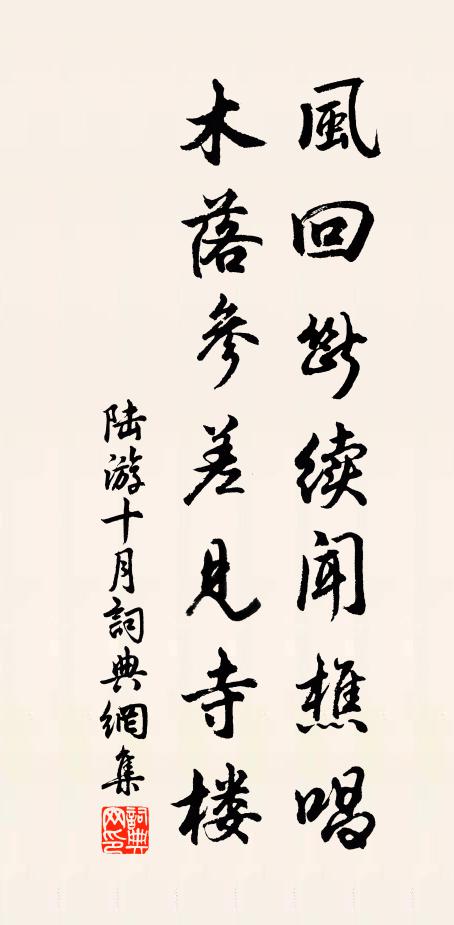 風回斷續聞樵唱
木落參差見寺楼
陸游十月詞典網集
詞典
网印